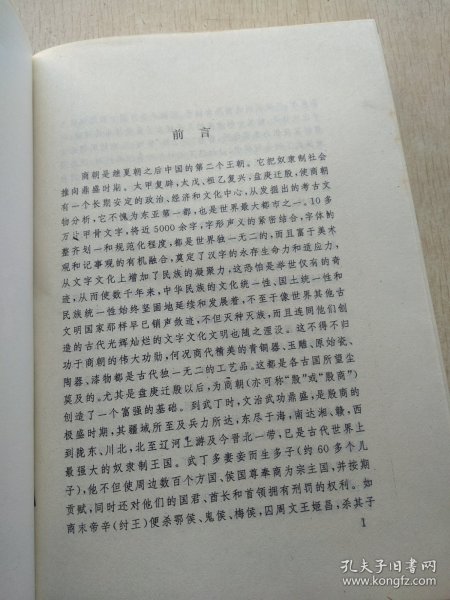 前言
商朝是继夏朝之后中国的第二个王朝。它把奴隶制社会
推向鼎盛时期。大甲复辟,太戊、祖乙复兴,盘庚迁殷,使商朝
有一个长期安定的政治、经济和文化中心,从发掘出的考古文
物分析,它不愧为东亚第一都,也是世界最大都市之一。10多
万片甲骨文字,将近5000余字,字形声义的紧密结合,字体的
整齐划一和规范化程度,都是世界独一无二的,而富于美术
观和记事观的有机融合,奠定了汉字的永存生命力和适应力,
从文字文化上增加了民族的凝聚力,这恐怕是举世仅有的奇
迹,从而使数千年来,中华民族的文化统一性、国土统一性和
民族统一性始终坚固地延续和发展着,不至于像世界其他古
文明国家那样早已销声敛迹,不但灭种灭族,而且连同他们创
造的古代光辉灿烂的文字文化文明也随之湮没。这不得不归
功于商朝的伟大功勋,何况商代精美的青铜器、玉雕、原始瓷、
陶器、漆物都是古代独一无二的工艺品。这都是各古国所望尘
莫及的。尤其是盘庚迁殷以后,为商朝(亦可称“殷”或“殷商”)
创造了一个富强的基础。到武丁时,文治武功鼎盛,是殷商的
极盛时期,其疆域所至及兵力所达,东尽于海,南达湘、赣,西
到陇东、川北,北至辽河上游及今晋北一带,已是古代世界上
最强大的奴隶制王国。武丁多妻妾而生多子(约60多个儿
子),他不但使周边数百个方国、侯国尊奉商为宗主国,并按期
贡赋,同时还对他们的国君、酋长和首领拥有刑罚的权利。如
商末帝辛(纣王)便杀鄂侯、鬼侯、梅侯,囚周文王姬昌,杀其子
1
孔夫子旧书网
www.kongfz.com